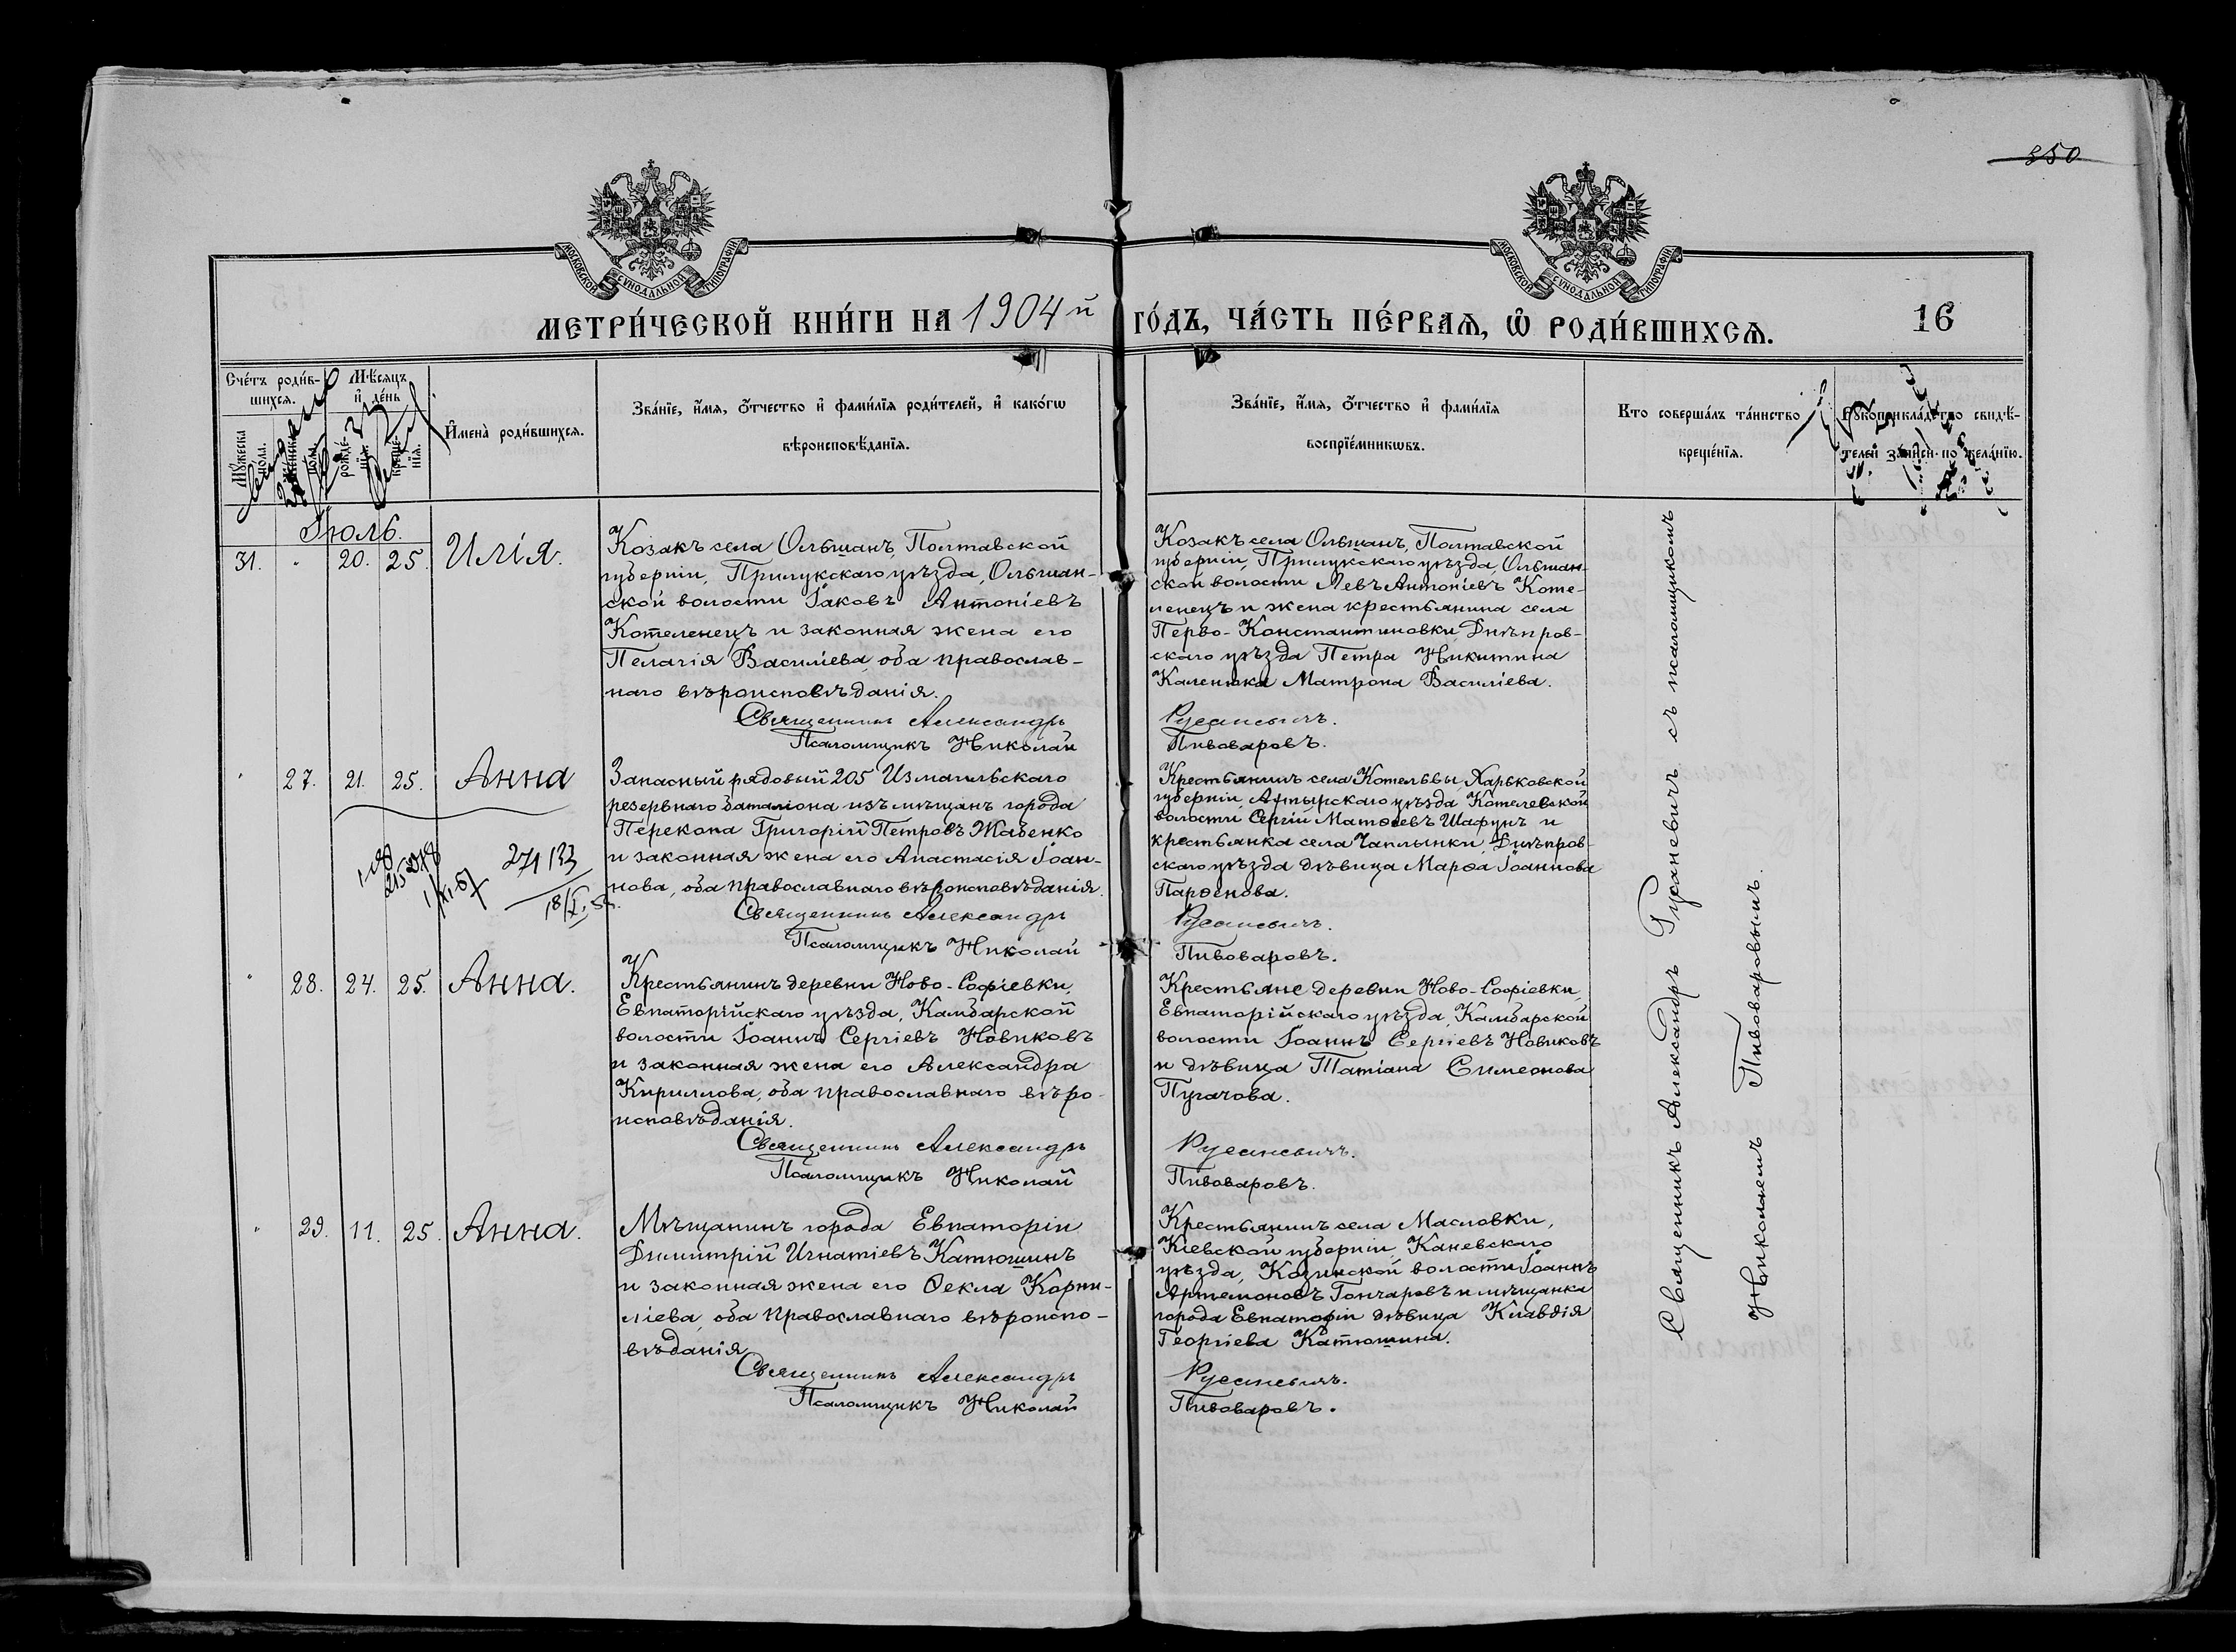 250
МОСКОВСКОЙ СѴНОДАЛЬНОЙ ТИПОГРАФІИ
МОСКОВСКОЙ СѴНОДАЛЬНОЙ ТИПОГРАФІИ
МЕТРИ́ЧЕСКОЙ КНИ́ГИ НА 1904й ГО́ДЪ, ЧА́СТЬ ПЕ́РВАѦ, Ѡ҆ РОДИ́ВШИХСѦ.
16
Сче́тъ роди́в-
шихсѧ.
Мꙋжеска
пола.
Женска
пола.
Мѣ́сѧцъ
и҆ де́нь
рожде́-
нїѧ.
креще́-
нїѧ.
И҆мена̀ роди́вшихсѧ.
Зва́нїе, и҆́мѧ, ѻ҆́тчество и҆ фами́лїѧ роди́телей, и҆ како́гѡ
вѣроисповѣ́данїѧ.
Зва́нїе, и҆́мѧ, ѻ҆́тчество и҆ фами́лїѧ
воспрїе́мникѡвъ.
Кто соверша́лъ та́инство
креще́нїѧ.
Рꙋкоприкла́дство свидѣ́-
телей за́писи по жела́нїю.
Іюль.
31. " 20. 25. Илія.
Козакъ села Ольшанъ, Полтавской
губерніи, Прилукскаго уѣзда, Ольшан-
ской волости Іаковъ Антоніевъ
Котеленецъ и законная жена его
Пелагія Василіева, оба православ-
наго вѣроисповѣданія.
Священникъ Александръ
Псаломщикъ Николай
Козакъ села Ольшанъ, Полтавской
губерніи, Прилукскаго уѣзда, Ольшан-
ской волости Левъ Антоніевъ Коте-
ленецъ и жена крестьянина села
Перво-Константиновки, Днѣпров-
скаго уѣзда Петра Никитина
Каленюка Матрона Василіева.
Русаневичъ.
Пивоваровъ.
" 27. 21. 25. Анна
271133
Запасный рядовый 205 Измаильскаго
резервнаго баталіона изъ мѣщанъ города
Перекопа Григорій Петровъ Жабенко
и законная жена его Анастасія Іоан-
нова, оба православнаго вѣроисповѣданія.
Священникъ Александръ
Псаломщикъ Николай
Крестьянинъ села Котельвы, Харьковской
губерніи, Ахтырскаго уѣзда, Котелевской
волости Сергій Матѳеевъ Шафунъ и
крестьянка села Чаплынки, Днѣпров-
скаго уѣзда дѣвица Марѳа Іоаннова
Парѳенова.
Русаневичъ.
Пивоваровъ.
" 28. 24. 25. Анна.
Крестьянинъ деревни Ново-Софіевки,
Евпаторійскаго уѣзда, Камбарской
волости Іоаннъ Сергіевъ Новиковъ
и законная жена его Александра
Кириллова, оба православнаго вѣро-
исповѣданія.
Священникъ Александръ
Псаломщикъ Николай
Крестьяне деревни Ново-Софіевки,
Евпаторійскаго уѣзда, Камбарской
волости Іоаннъ Сергіевъ Новиковъ
и дѣвица Татіана Симеонова
Пугачова.
Русаневичъ.
Пивоваровъ.
" 29. 11. 25. Анна.
Мѣщанинъ города Евпаторіи
Димитрій Игнатіевъ Катюшинъ
и законная жена его Ѳекла Корни-
ліева, оба православнаго вѣроиспо-
вѣданія.
Священникъ Александръ
Псаломщикъ Николай
Крестьянинъ села Масловки,
Кіевской губерніи, Каневскаго
уѣзда, Козинской волости Іоаннъ
Артемоновъ Гончаровъ и мѣщанка
города Евпаторіи дѣвица Клавдія
Георгіева Катюшина.
Русаневичъ.
Пивоваровъ.
Священникъ Александръ Русаневичъ съ псаломщикомъ
Николаемъ Пивоваровымъ.